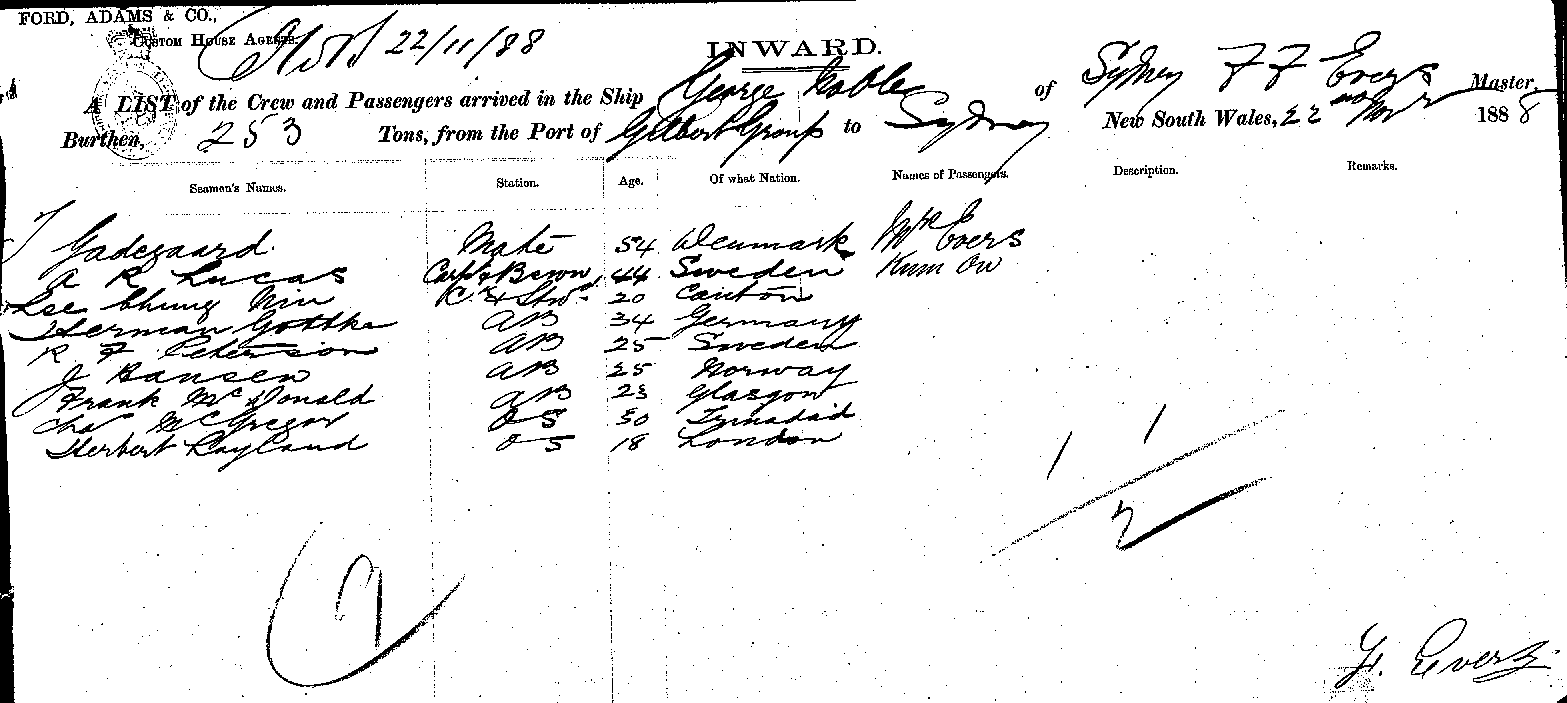 FORD, ADAMS & CO.,
CUSTOM HOUSE AGENTS.
22/11/88
INWARD.
A LIST of the Crew and Passengers arrived in the Ship George Noble of Sydney F F Evers Master,
Burthen, 253 Tons, from the Port of Gilbert Group to Sydney New South Wales, 22nd Novr 1888
Seamen's Names. Station. Age. Of what Nation. Names of Passengers. Description. Remarks.
J Gadegaard Mate 54 Denmark Mr E Evers
A R Lucas Carpr & Bswn 44 Sweden Kum Ow
Lee Chung Nin C & Stwd 20 Canton
Herman Gottke AB 34 Germany
R F Peterson AB 25 Sweden
J Hansen AB 25 Norway
Frank McDonald AB 23 Glasgow
Chas McGregor OS 50 Trinadad
Herbert Rayland OS 18 London
1 1
2
9
F. Evers